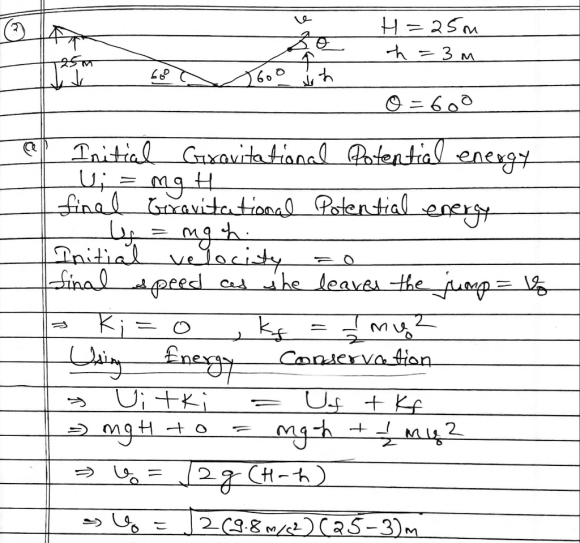 (2) v H = 25m
θ h = 3 m
25m 60° 60° h
θ = 60°
(a) Initial Gravitational Potential energy
Ui = mgH
final Gravitational Potential energy
Uf = mgh.
Initial velocity = 0
final speed as she leaves the jump = v₀
⇒ Ki = 0 , Kf = 1/2 mv₀²
Using Energy Conservation
⇒ Ui + Ki = Uf + Kf
⇒ mgH + 0 = mgh + 1/2 mv₀²
⇒ v₀ = √2g(H-h)
⇒ v₀ = √2(9.8 m/s²)(25-3)m